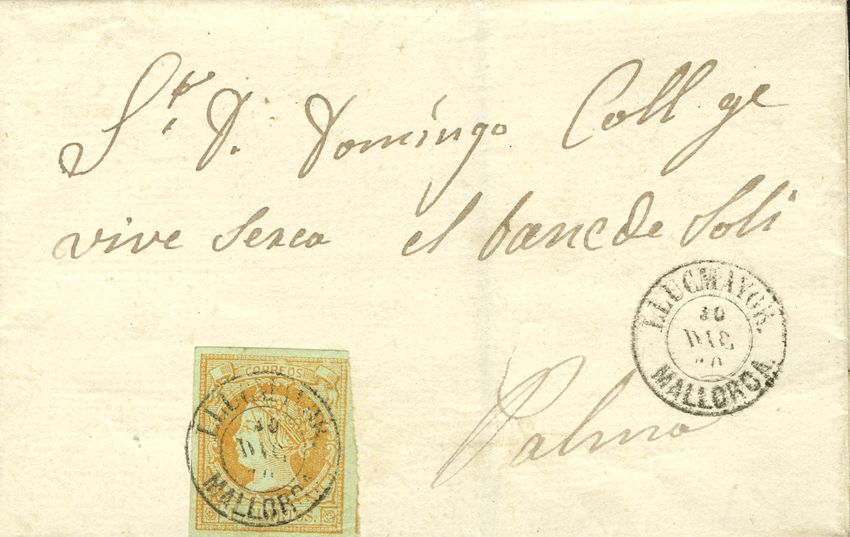 Sr. D. Domingo Coll ge
vive serca el banc de Soli
LLUCMAYOR.
10
DIC
60
MALLORCA
Palma
CORREOS
LLUCMAYOR.
10
DIC
MALLORCA